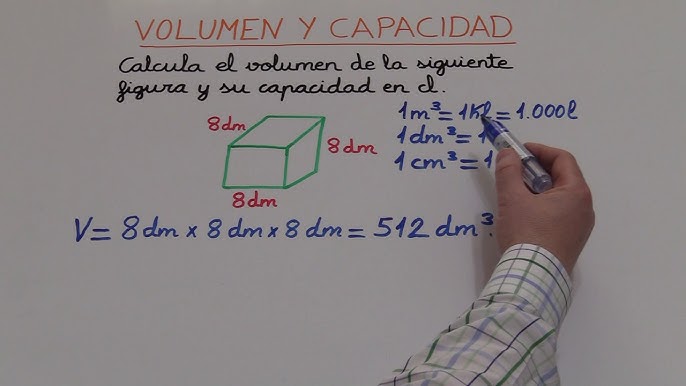 VOLUMEN Y CAPACIDAD
Calcula el volumen de la siguiente
figura y su capacidad en cl.
8 dm
8 dm
8 dm
1 m³ = 1 kl = 1.000 l
1 dm³ = 1
1 cm³ = 1
V = 8 dm x 8 dm x 8 dm = 512 dm³